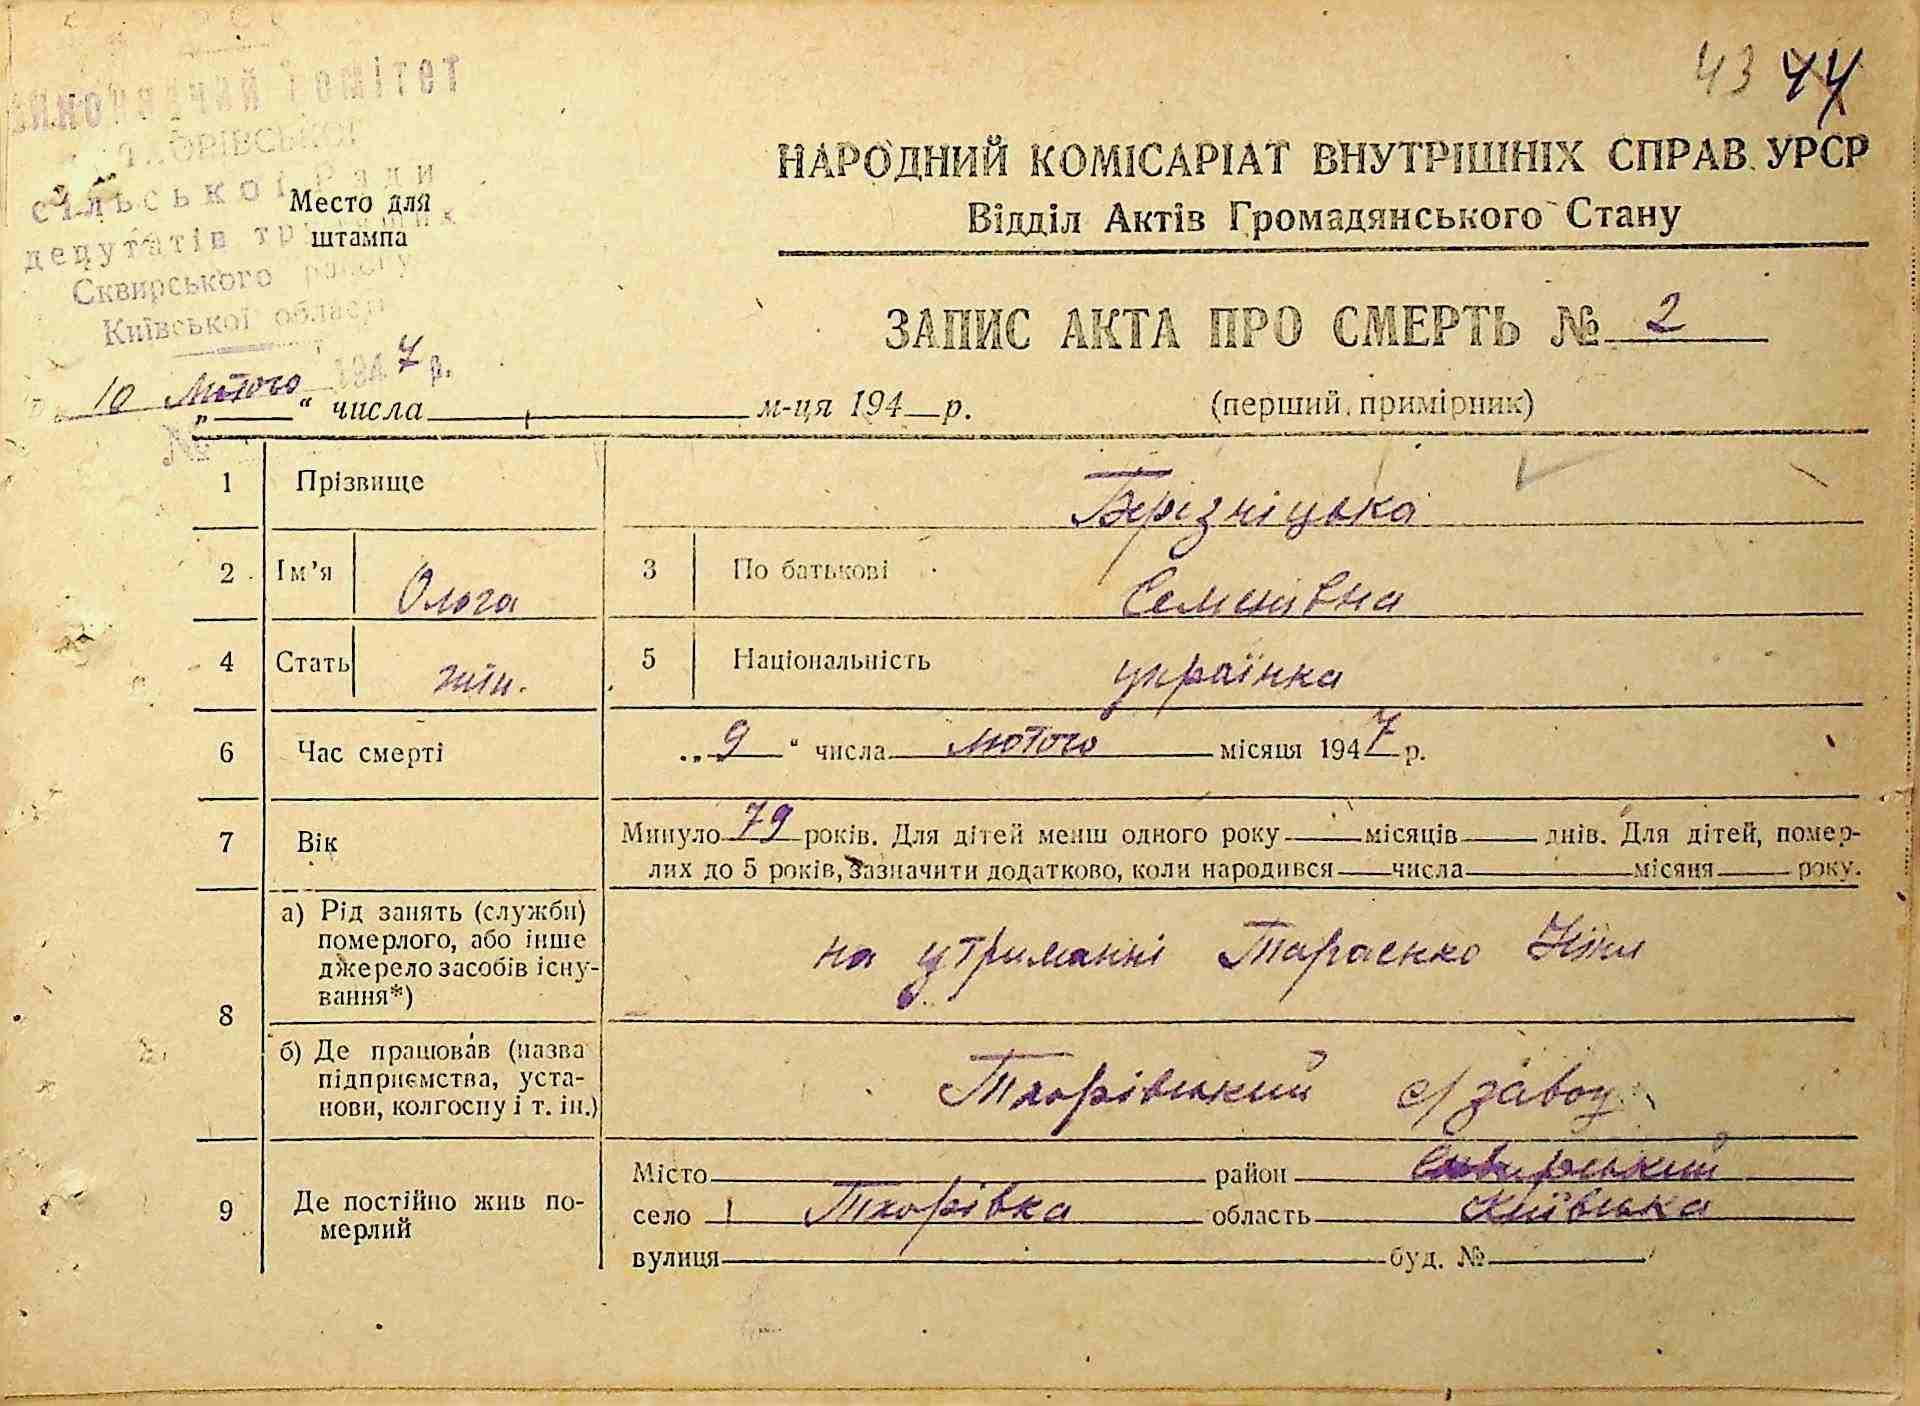 43 44
Виконавчий Комітет
сільської Ради
депутатів трудящих
Сквирського району
Київської області
10 лютого 1947 р.
№
Место для
штампа
НАРОДНИЙ КОМІСАРІАТ ВНУТРІШНІХ СПРАВ УРСР
Відділ Актів Громадянського Стану
ЗАПИС АКТА ПРО СМЕРТЬ № 2
„ “ числа м-ця 194 р. (перший примірник)
1 Прізвище Берізніцька
2 Ім’я Ольга 3 По батькові Семенівна
4 Стать жін. 5 Національність українка
6 Час смерті „9“ числа лютого місяця 1947 р.
7 Вік Минуло 79 років. Для дітей менш одного року місяців днів. Для дітей, помер-
лих до 5 років, зазначити додатково, коли народився числа місяця року.
8 а) Рід занять (служби)
померлого, або інше
джерело засобів існу-
вання*)
на утриманні Тарасенко Ніни
б) Де працював (назва
підприємства, уста-
нови, колгоспу і т. ін.)
Тхорівський с/завод
9 Де постійно жив по-
мерлий
Місто район Сквирський
село Тхорівка область Київська
вулиця буд. №